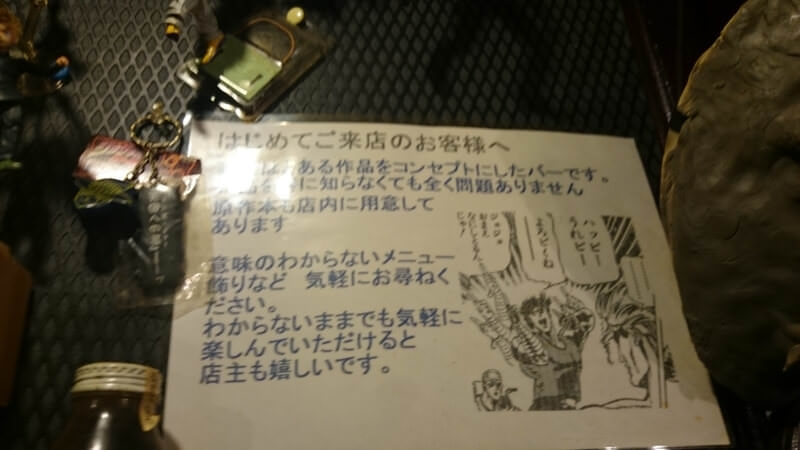 はじめてご来店のお客様へ
ある作品をコンセプトにしたバーです。
に知らなくても全く問題ありません
原作本も店内に用意して
あります
意味のわからないメニュー
飾りなど 気軽にお尋ねく
ださい。
わからないままでも気軽に
楽しんでいただけると
店主も嬉しいです。
ハッピー
うれピー
よろピくね
ジョジョ
おまえ